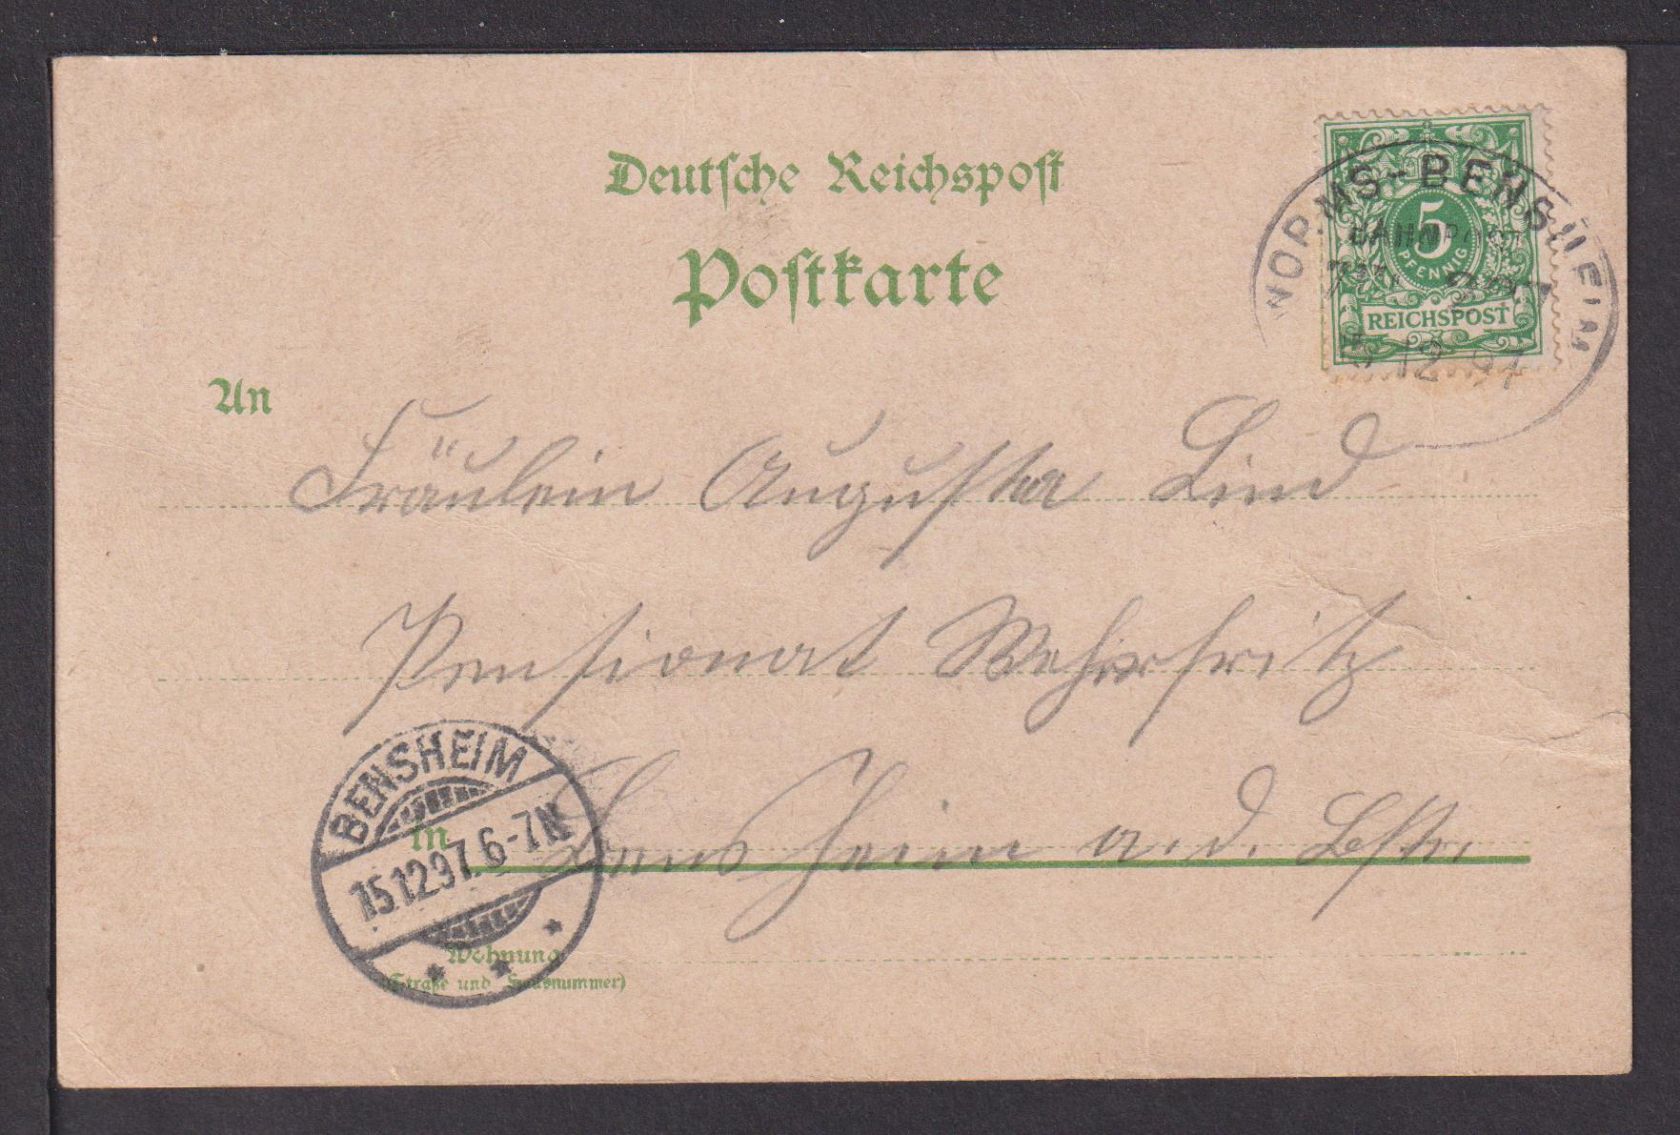 Deutsche Reichspost
Postkarte
WORMS-BENSHEIM
BAHNPOST
5
PFENNIG
REICHSPOST
12 97
An
Fräulein Augusta Lind
Pensionat Wehrfritz
BENSHEIM
15.12.97. 6-7N.
In Bensheim a. d. Bstr.
Wohnung
(Straße und Hausnummer)